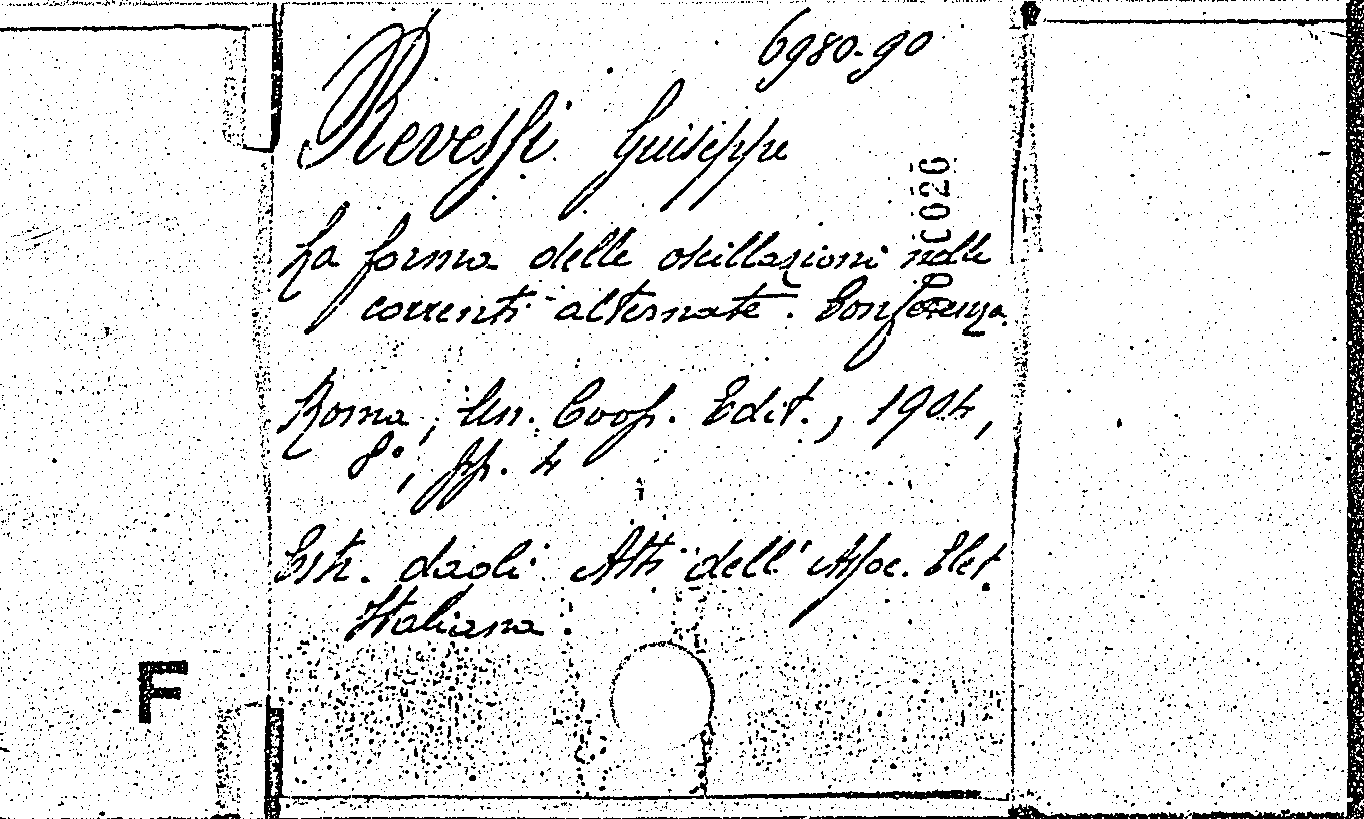 6980-90
Revessi Guiseppe
La forma delle oscillazioni nelle
correnti alternate. Conferenza.
Roma, Un. Coop. Edit., 1904,
8°, pp. 4
Estr. dagli Atti dell' Assoc. Elet.
Italiana.
F